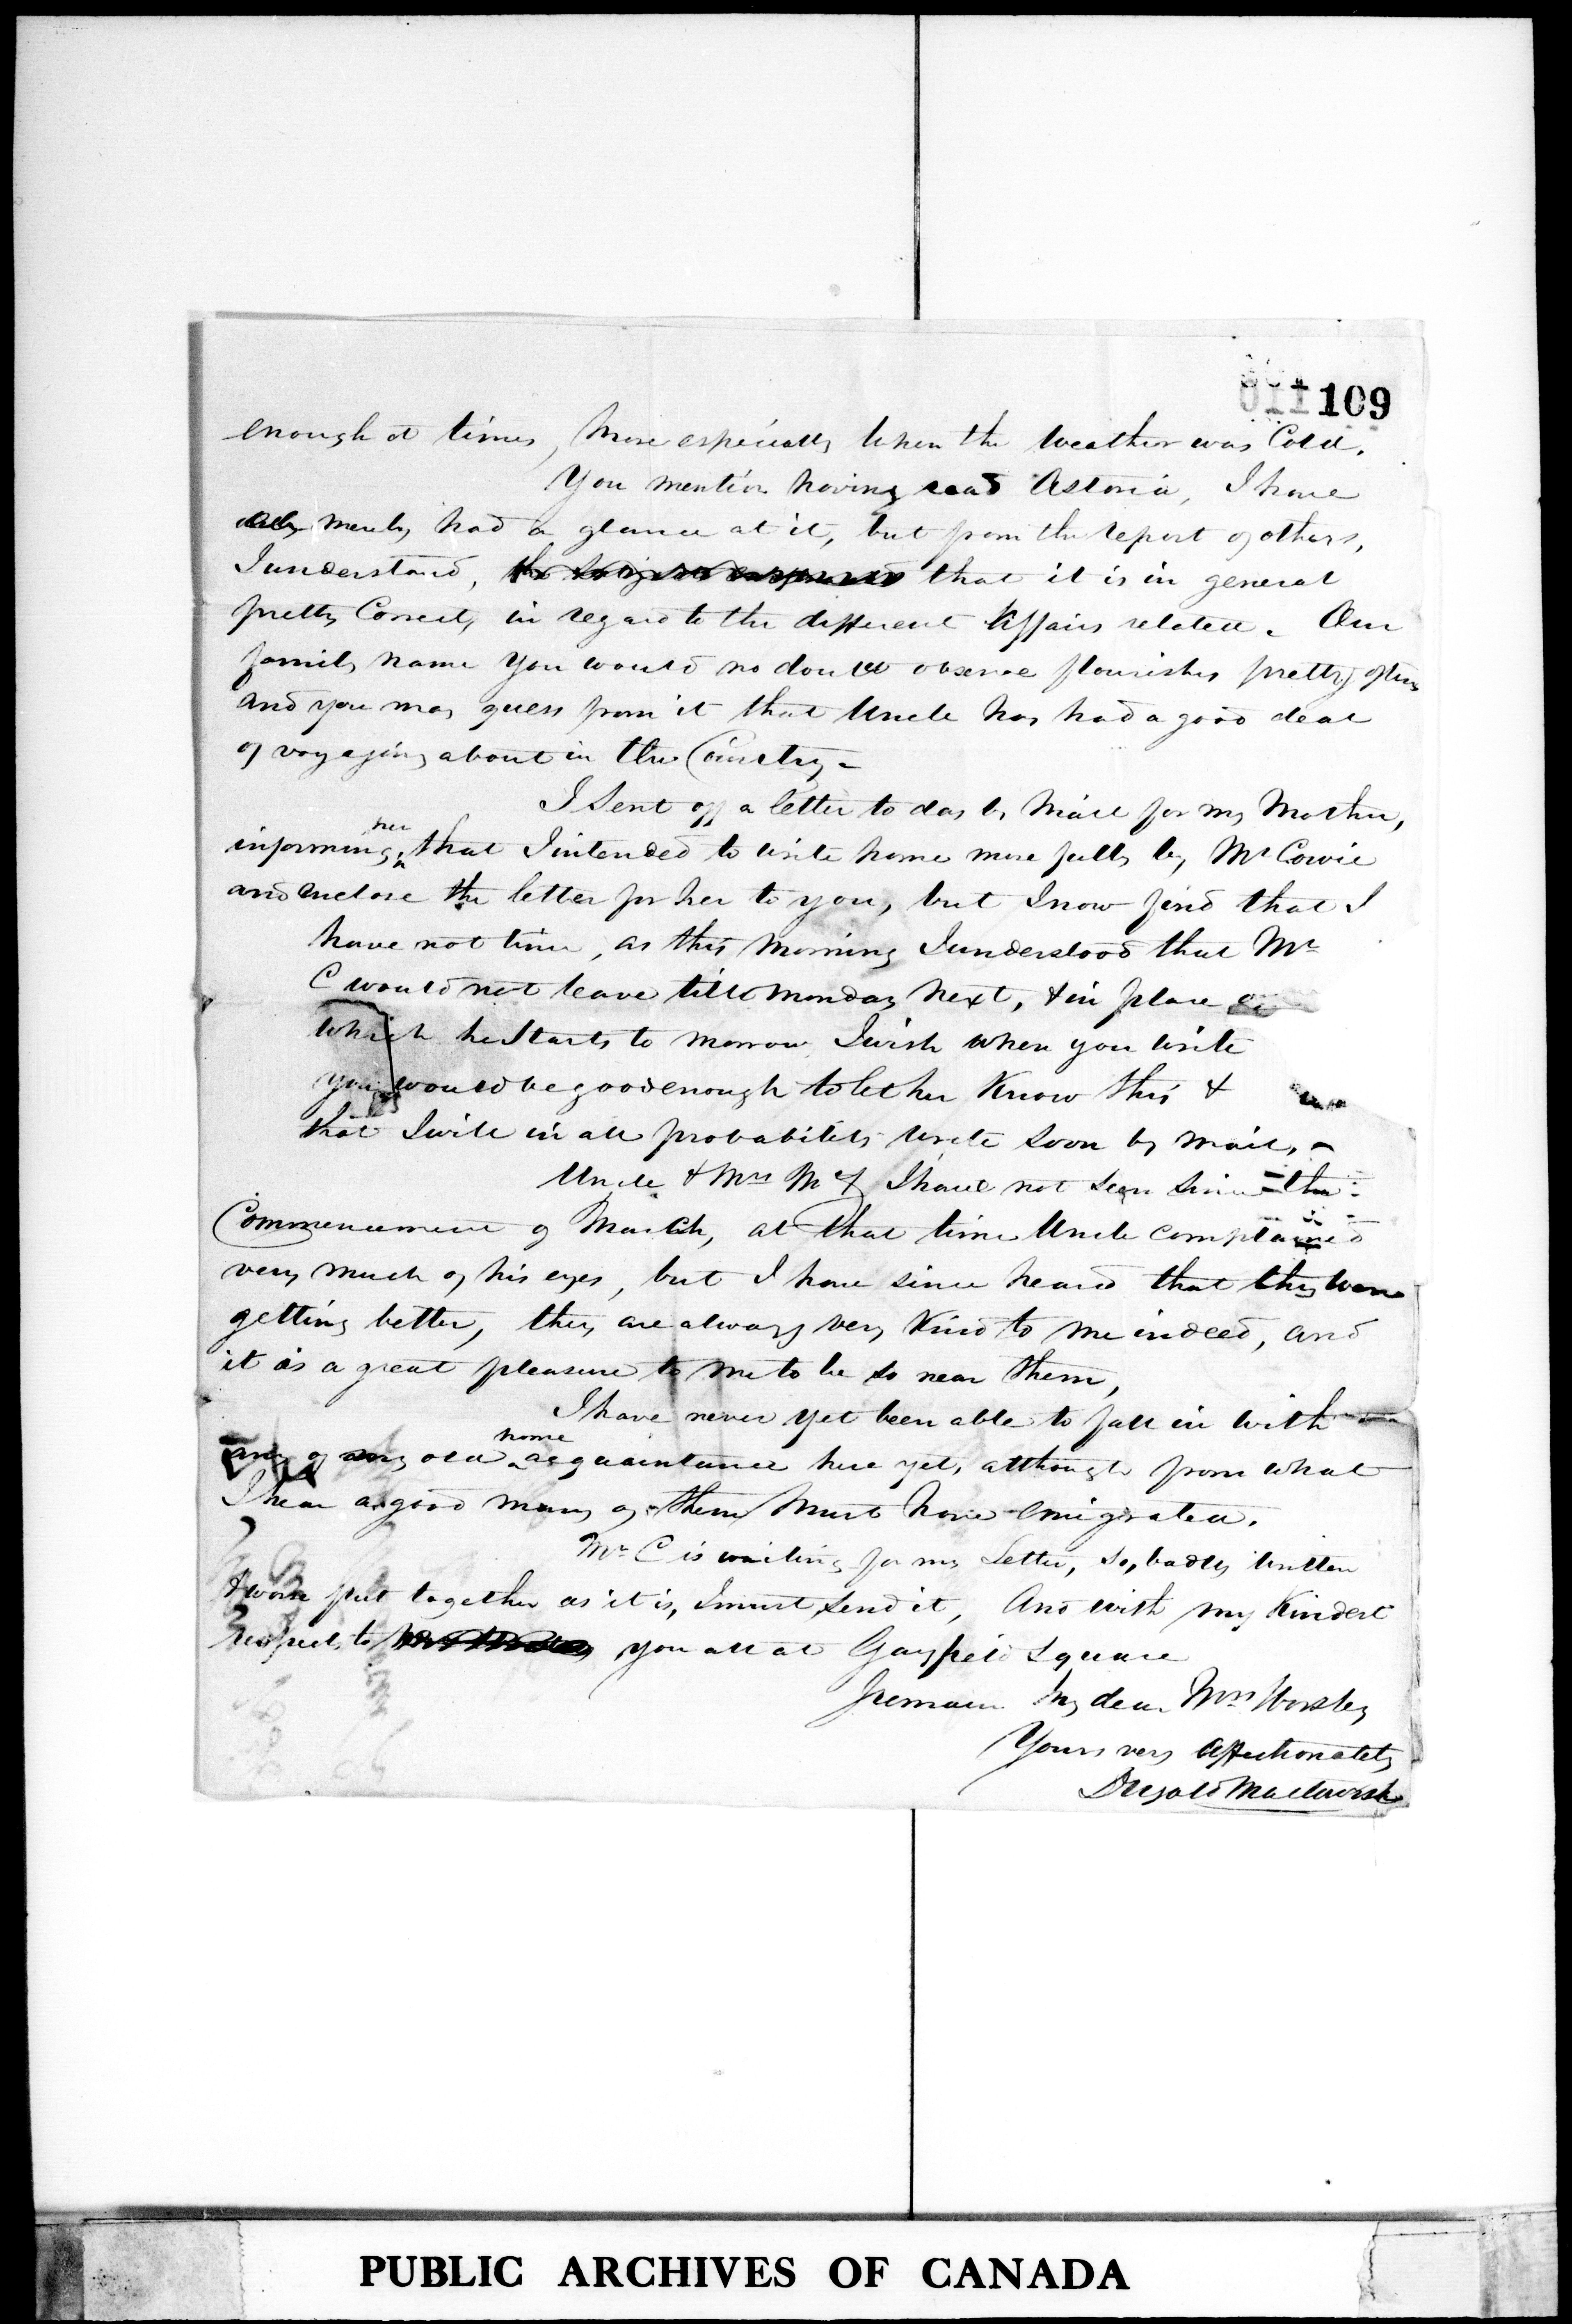 109
enough at times, more especially when the weather was Cold.
You mention having read Astoria, I have
merely had a glance at it, but from the report of others,
I understand, that it is in general
pretty Correct, in regard to the different Affairs related. Our
family name you would no doubt observe flourishes pretty often
and you may guess from it that Uncle has had a good deal
of voyaging about in the Country –
I sent off a letter to day by Mail for my Mother,
informing her that I intended to write home more fully by Mr Cowie
and enclose the letter for her to you, but I now find that I
have not time, as this Morning I understood that Mr
C would not leave till Monday next, & in place of
which he starts to morrow I wish when you write
you would be good enough to let her Know this &
that I will in all probability write soon by Mail, –
Uncle & Mrs McT I have not seen since the
Commencement of March, at that time Uncle complained
very much of his eyes, but I have since heard that they were
getting better, they are always very Kind to me indeed, and
it is a great pleasure to me to be so near them,
I have never yet been able to fall in with
any of my old home acquaintance here yet, although from what
I hear a good many of them must have emigrated.
Mr C is waiting for my Letter, so, badly written
& worse put together as it is, I must send it, And with my Kindest
respects to you all at Gayfield Square
I remain My dear Mrs Worsley
Yours very Affectionately
Dugald Mactavish
PUBLIC ARCHIVES OF CANADA